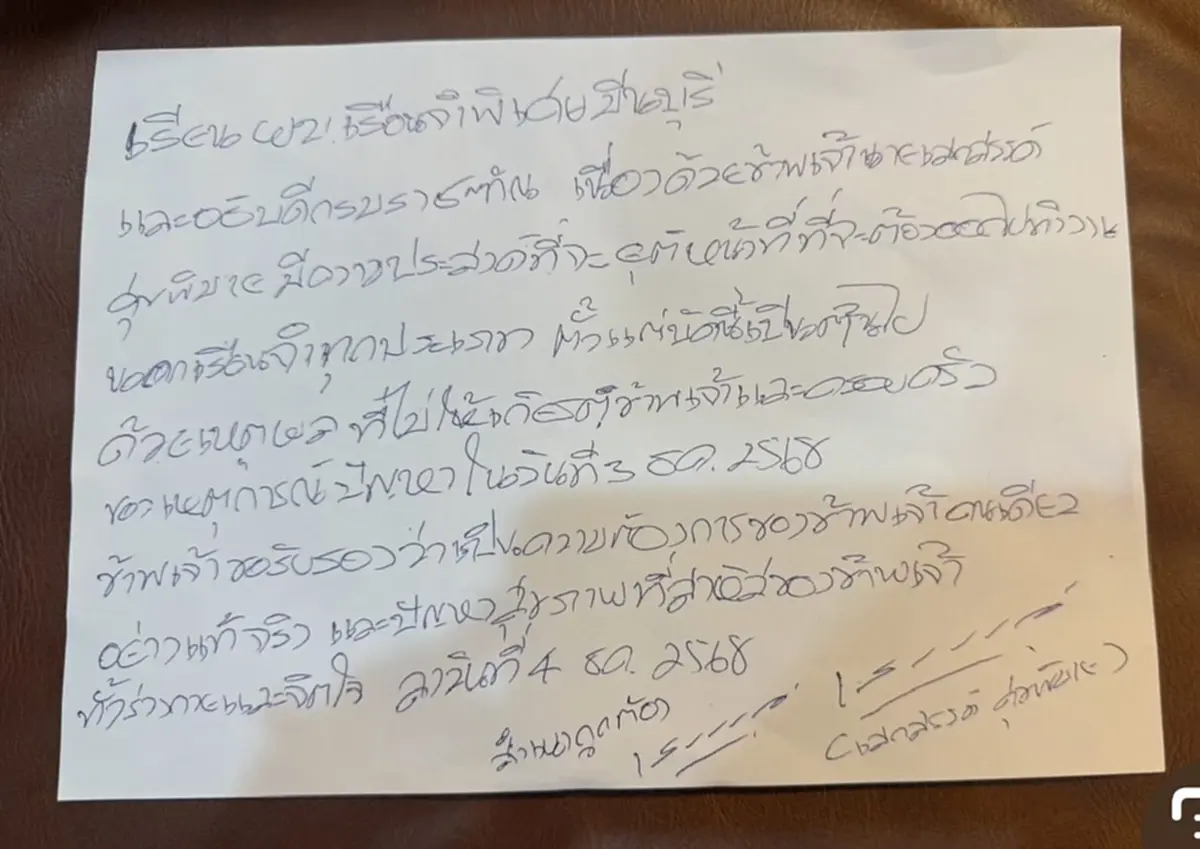 เรียน ผบ.เรือนจำพิเศษมีนบุรี
และอธิบดีกรมราชทัณ เนื่องด้วยข้าพเจ้านายเสกสรรค์
ศุขพิมาย มีความประสงค์ที่จะยุติหน้าที่ที่จะต้องออกไปทำงาน
นอกเรือนจำทุกประเภท ตั้งแต่บัดนี้เป็นต้นไป
ด้วยเหตุผล ที่ไม่ให้เกียรติข้าพเจ้าและครอบครัว
ของเหตุการณ์ปัญหาในวันที่ 3 ธค. 2568
ข้าพเจ้าขอรับรองว่าเป็นความต้องการของข้าพเจ้าคนเดียว
อย่างแท้จริง และปัญหาสุขภาพที่สาหัสของข้าพเจ้า
ทั้งร่างกายและจิตใจ ลงวันที่ 4 ธค. 2568
สำเนาถูกต้อง
(เสกสรรค์ ศุขพิมาย)